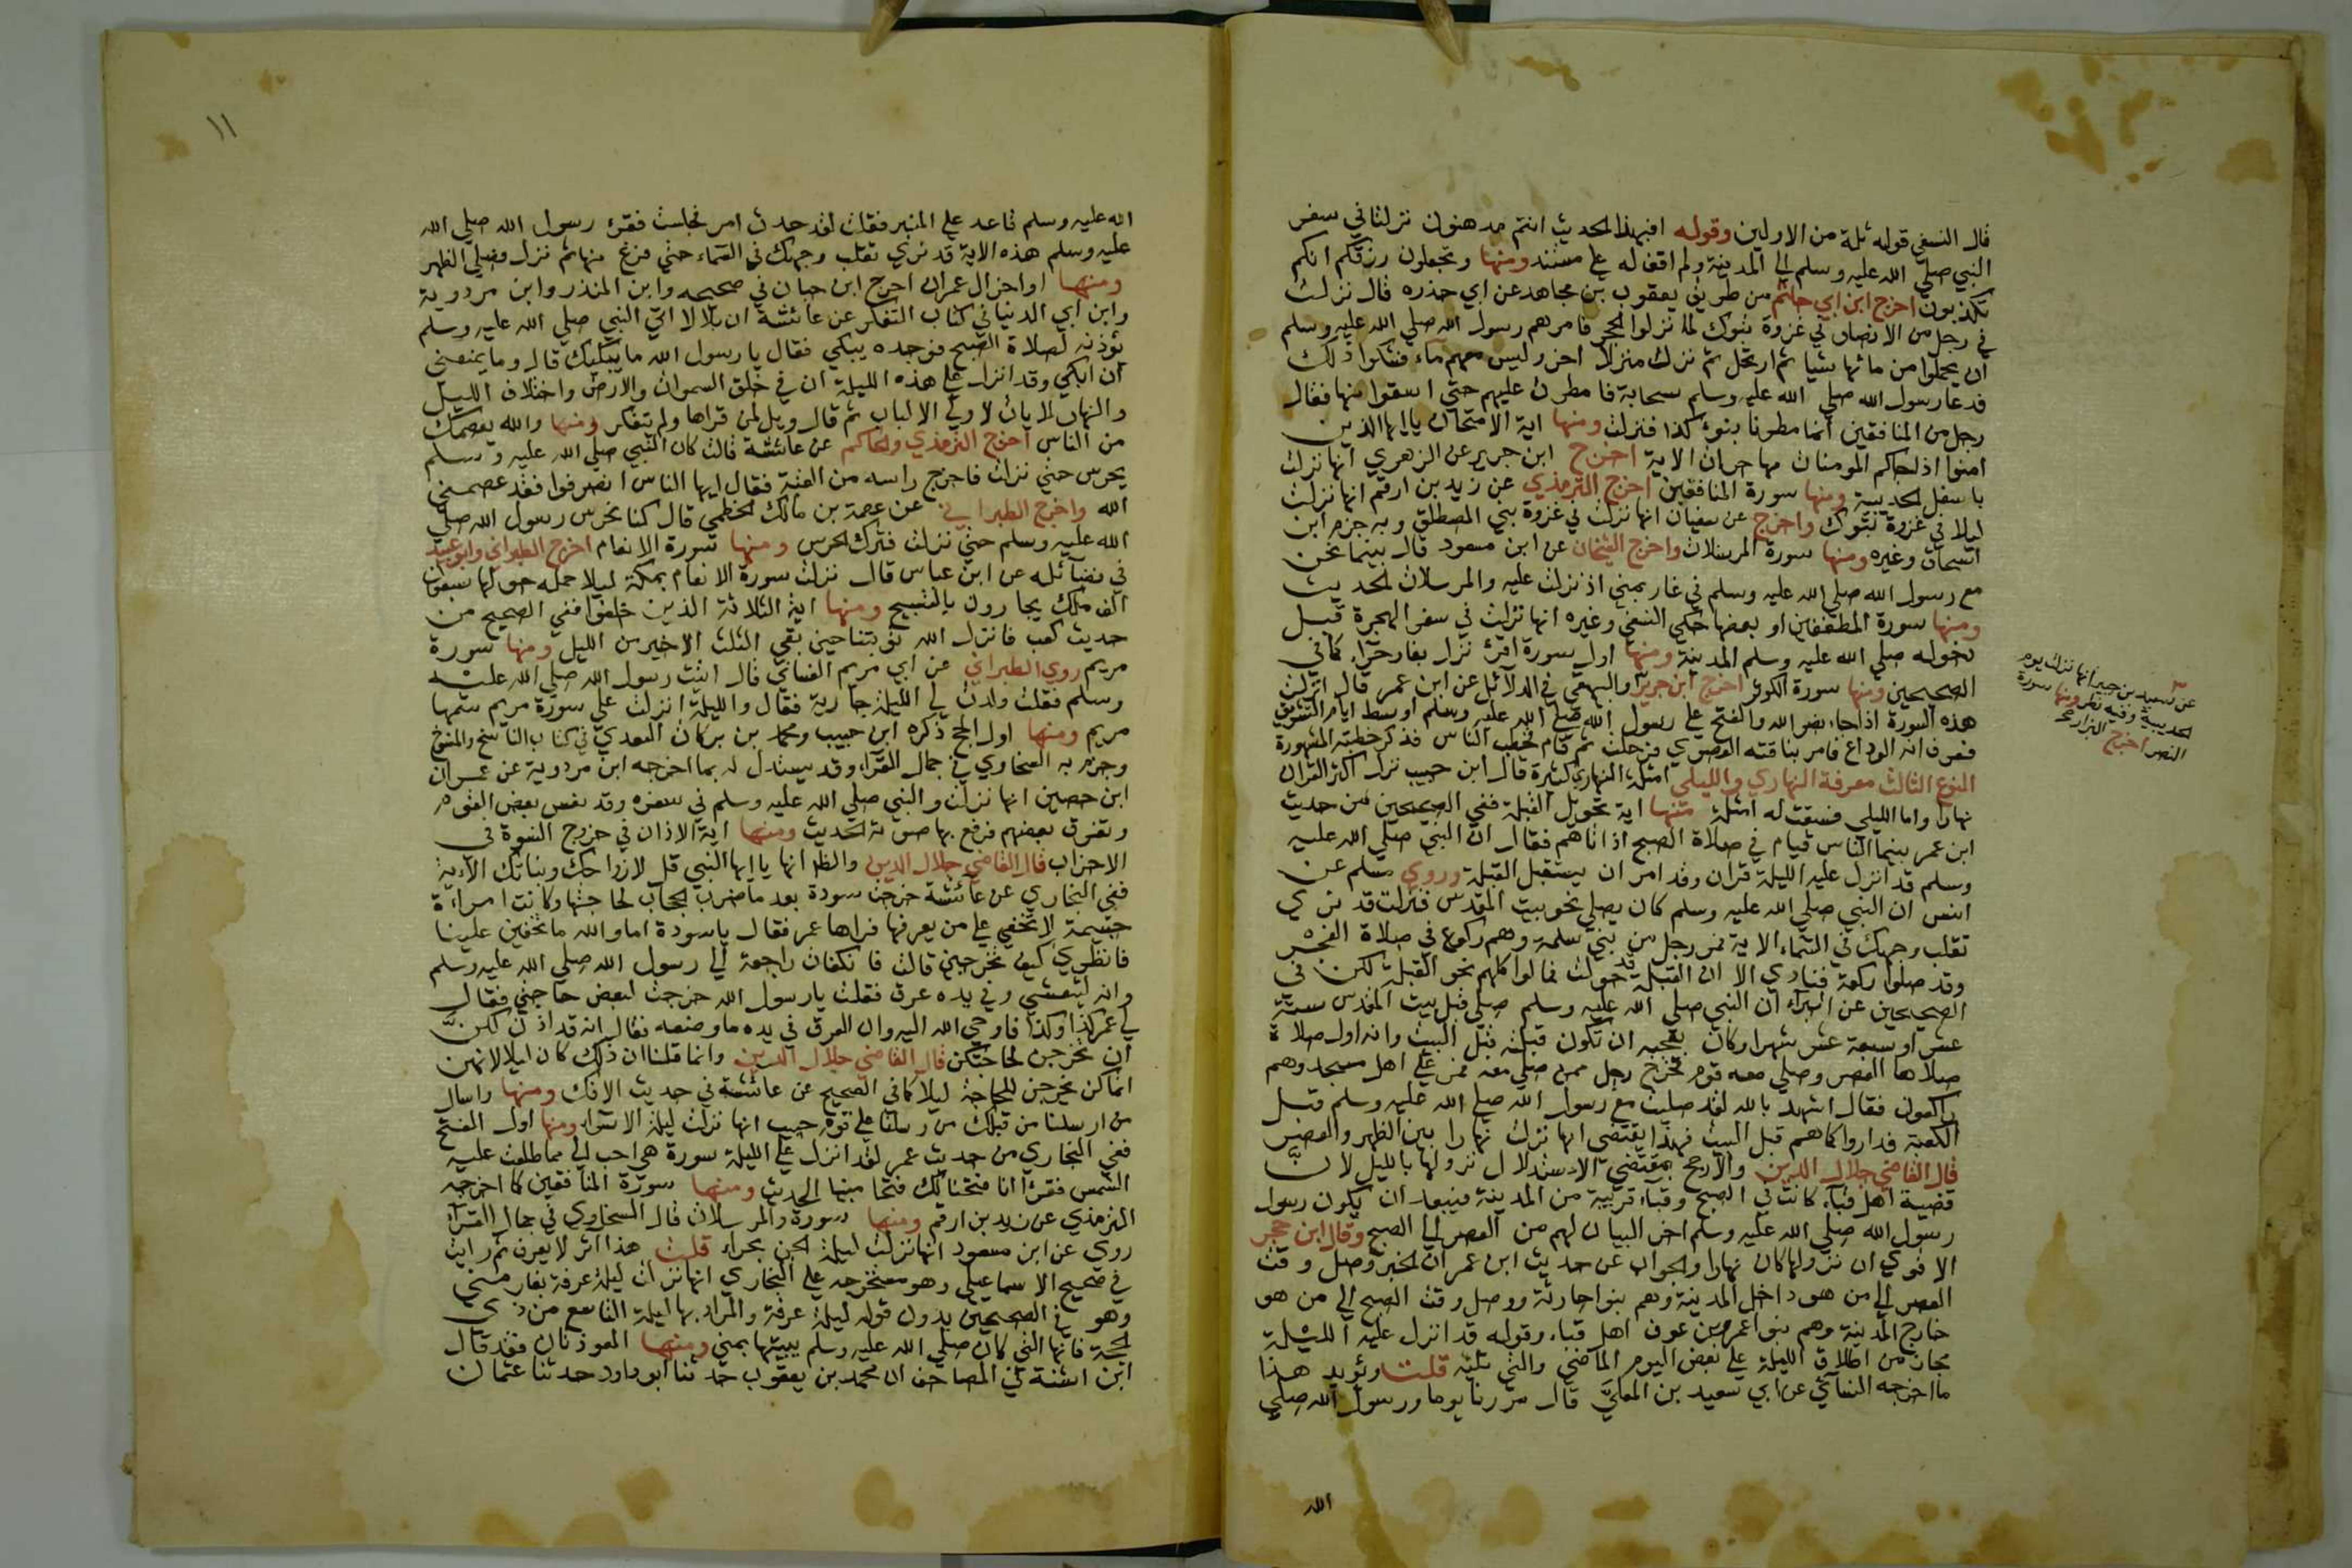 قال النسفي قوله ثلة من الاولين وقوله افبهذا الحديث انتم مدهنون نزلتا في سفر
النبي صلى الله عليه وسلم الى المدينة ولم اقف له على مستند ومنها وتجعلون رزقكم انكم
تكذبون اخرج ابن ابي حاتم من طريق يعقوب بن مجاهد عن ابي حذره قال نزلت
في رجل من الانصار في غزوة تبوك لما نزلوا الحجر فامرهم رسول الله صلى الله عليه وسلم
ان يحملوا من مائها شيا ثم ارتحل ثم نزل منزلا اخر وليس معهم ماء فشكوا ذلك
فدعا رسول الله صلى الله عليه وسلم سحابة فامطرت عليهم حتى اسقوا منها فقال
رجل من المنافقين انما مطرنا بنوء كذا فنزلت ومنها اية الامتحان يا ايها الذين
امنوا اذا جاكم المومنات مهاجرات الاية اخرج ابن جرير عن الزهري انها نزلت
باسفل الحديبية ومنها سورة المنافقين اخرج الترمذي عن زيد بن ارقم انها نزلت
ليلا في غزوة تبوك واخرج عن سفيان انها نزلت في غزوة بني المصطلق وبه جزم ابن
اسحاق وغيره ومنها سورة المرسلات واخرج الشيخان عن ابن مسعود قال بينما نحن
مع رسول الله صلى الله عليه وسلم في غار بمني اذ نزلت عليه والمرسلات الحديث
ومنها سورة المطففين او بعضها حكي النسفي وغيره انها نزلت في سفر الهجرة قبل
دخوله صلى الله عليه وسلم المدينة ومنها اول سورة اقرئ نزل بغار حراء كما في
الصحيحين ومنها سورة الكوثر اخرج ابن جرير والبيهقي في الدلائل عن ابن عمر قال انزلت
هذه السورة اذا جاء نصر الله والفتح على رسول الله صلى الله عليه وسلم اوسط ايام التشريق
فعرف انه الوداع فامر بناقته القصوي فرحلت ثم قام فخطب الناس فذكر خطبته المشهورة
النوع الثالث معرفة النهاري والليلي امثلة النهاري كثيرة قال ابن حبيب نزل اكثر القران
نهارا واما الليلي فتتبعت له امثلة منها اية تحويل القبلة ففي الصحيحين من حديث
ابن عمر بينما الناس قيام في صلاة الصبح اذ اتاهم فقال ان النبي صلى الله عليه
وسلم قد انزل عليه الليلة قران وقد امر ان يستقبل القبلة وروي مسلم عن
انس ان النبي صلى الله عليه وسلم كان يصلي نحو بيت المقدس فنزلت قد نري
تقلب وجهك في السماء الاية فمر رجل من بني سلمة وهم ركوع في صلاة الفجر
وقد صلوا ركعة فنادي الا ان القبلة قد حولت فمالوا كلهم نحو القبلة لكن في
الصحيحين عن البراء ان النبي صلى الله عليه وسلم صلي قبل بيت المقدس ستة
عشر او سبعة عشر شهرا وكان يعجبه ان تكون قبلته قبل البيت وانه اول صلاة
صلاها العصر وصلي معه قوم فخرج رجل ممن صلي معه فمر على اهل مسجد وهم
راكعون فقال اشهد بالله لقد صليت مع رسول الله صلى الله عليه وسلم قبل
الكعبة فداروا كما هم قبل البيت فهذا يقتضي انها نزلت نهارا بين الظهر والعصر
قال القاضي جلال الدين والارجح بمقتضي الاستدلال نزولها بالليل لان
قضية اهل قباء كانت في الصبح وقباء قريبة من المدينة فيبعد ان يكون رسول
رسول الله صلى الله عليه وسلم اخر البيان لهم من العصر الى الصبح وقال ابن حجر
الاقوي ان نزولها كان نهارا والجواب عن حديث ابن عمر ان الخبر وصل وقت
العصر الى من هو داخل المدينة وهم بنوا حارثة ووصل وقت الصبح الى من هو
خارج المدينة وهم بنوا عمرو بن عوف اهل قباء وقوله قد انزل عليه الليلة
مجاز من اطلاق الليلة على بعض اليوم الماضي والتي تليه قلت ويؤيد هذا
ما اخرجه النسائي عن ابي سعيد بن المعلي قال مررنا يوما ورسول الله صلي
الله
عن سعيد بن جبير انها نزلت يوم
الحديبية وفيه نظر ومنها سورة
النصر اخرج البزار
١١
الله عليه وسلم قاعد على المنبر فقلت لقد حدث امر فجلست فقرئ رسول الله صلى الله
عليه وسلم هذه الاية قد نري تقلب وجهك في السماء حتي فرغ منها ثم نزل فصلي الظهر
ومنها اواخر ال عمران اخرج ابن حبان في صحيحه وابن المنذر وابن مردوية
وابن ابي الدنيا في كتاب التفكر عن عائشة ان بلالا اتي النبي صلى الله عليه وسلم
يؤذنه لصلاة الصبح فوجده يبكي فقال يا رسول الله ما يبكيك قال وما يمنعني
ان ابكي وقد انزل علي هذه الليلة ان في خلق السموات والارض واختلاف الليل
والنهار لايات لاولي الالباب ثم قال ويل لمن قراها ولم يتفكر ومنها والله يعصمك
من الناس اخرج الترمذي والحاكم عن عائشة قالت كان النبي صلى الله عليه وسلم
يحرس حتي نزلت فاخرج راسه من القبة فقال ايها الناس انصرفوا فقد عصمني
الله واخرج الطبراني عن عصمة بن مالك الخطمي قال كنا نحرس رسول الله صلى
الله عليه وسلم حتي نزلت فترك الحرس ومنها سورة الانعام اخرج الطبراني وابو عبيد
في فضائله عن ابن عباس قال نزلت سورة الانعام بمكة ليلا جملة حولها سبعون
الف ملك يجارون بالتسبيح ومنها اية الثلاثة الذين خلفوا ففي الصحيح من
حديث كعب فانزل الله توبتنا حين بقي الثلث الاخير من الليل ومنها سورة
مريم روي الطبراني عن ابي مريم الغساني قال اتيت رسول الله صلى الله عليه
وسلم فقلت ولدت لي الليلة جارية فقال والليلة انزلت علي سورة مريم سمها
مريم ومنها اول الحج ذكره ابن حبيب ومحمد بن بركات السعدي في كتاب الناسخ والمنسوخ
وجزم به السخاوي في جمال القراء وقد يستدل له بما اخرجه ابن مردوية عن عمران
ابن حصين انها نزلت والنبي صلى الله عليه وسلم في سفره وقد نعس بعض القوم
وتفرق بعضهم فرفع بها صوته الحديث ومنها اية الاذان في خروج النسوة في
الاحزاب قال القاضي جلال الدين والظاهر انها يا ايها النبي قل لازواجك وبناتك الاية
ففي البخاري عن عائشة خرجت سودة بعد ما ضرب الحجاب لحاجتها وكانت امراة
جسيمة لا تخفي على من يعرفها فراها عمر فقال يا سودة اما والله ما تخفين علينا
فانظري كيف تخرجين قالت فانكفات راجعة الى رسول الله صلى الله عليه وسلم
وانه ليتعشي وفي يده عرق فقلت يا رسول الله خرجت لبعض حاجتي فقال
لي عمر كذا وكذا فاوحي الله اليه وان العرق في يده ما وضعه فقال انه قد اذن لكن
ان تخرجن لحاجتكن قال القاضي جلال الدين وانما قلنا ان ذلك كان ليلا لانهن
انما كن يخرجن للحاجة ليلا كما في الصحيح عن عائشة في حديث الافك ومنها واسال
من ارسلنا من قبلك من رسلنا على قول حبيب انها نزلت ليلة الاسراء ومنها اول الفتح
ففي البخاري من حديث عمر لقد انزل علي الليلة سورة هي احب الي مما طلعت عليه
الشمس فقرا انا فتحنا لك فتحا مبينا الحديث ومنها سورة المنافقين كما اخرجه
الترمذي عن زيد بن ارقم ومنها سورة والمرسلات قال السخاوي في جمال القراء
روي عن ابن مسعود انها نزلت ليلة الجن بحراء قلت هذا اثر لا يعرف ثم رايت
في صحيح الاسماعيلي وهو مستخرجه على البخاري انها نزلت ليلة عرفة بغار مني
وهو في الصحيحين بدون قوله ليلة عرفة والمراد بها ليلة التاسع من ذي
الحجة فانها التي كان صلى الله عليه وسلم يبيتها بمني ومنها المعوذتان فقد قال
ابن اشتة في المصاحف ان محمد بن يعقوب حدثنا ابو داود حدثنا عثمان